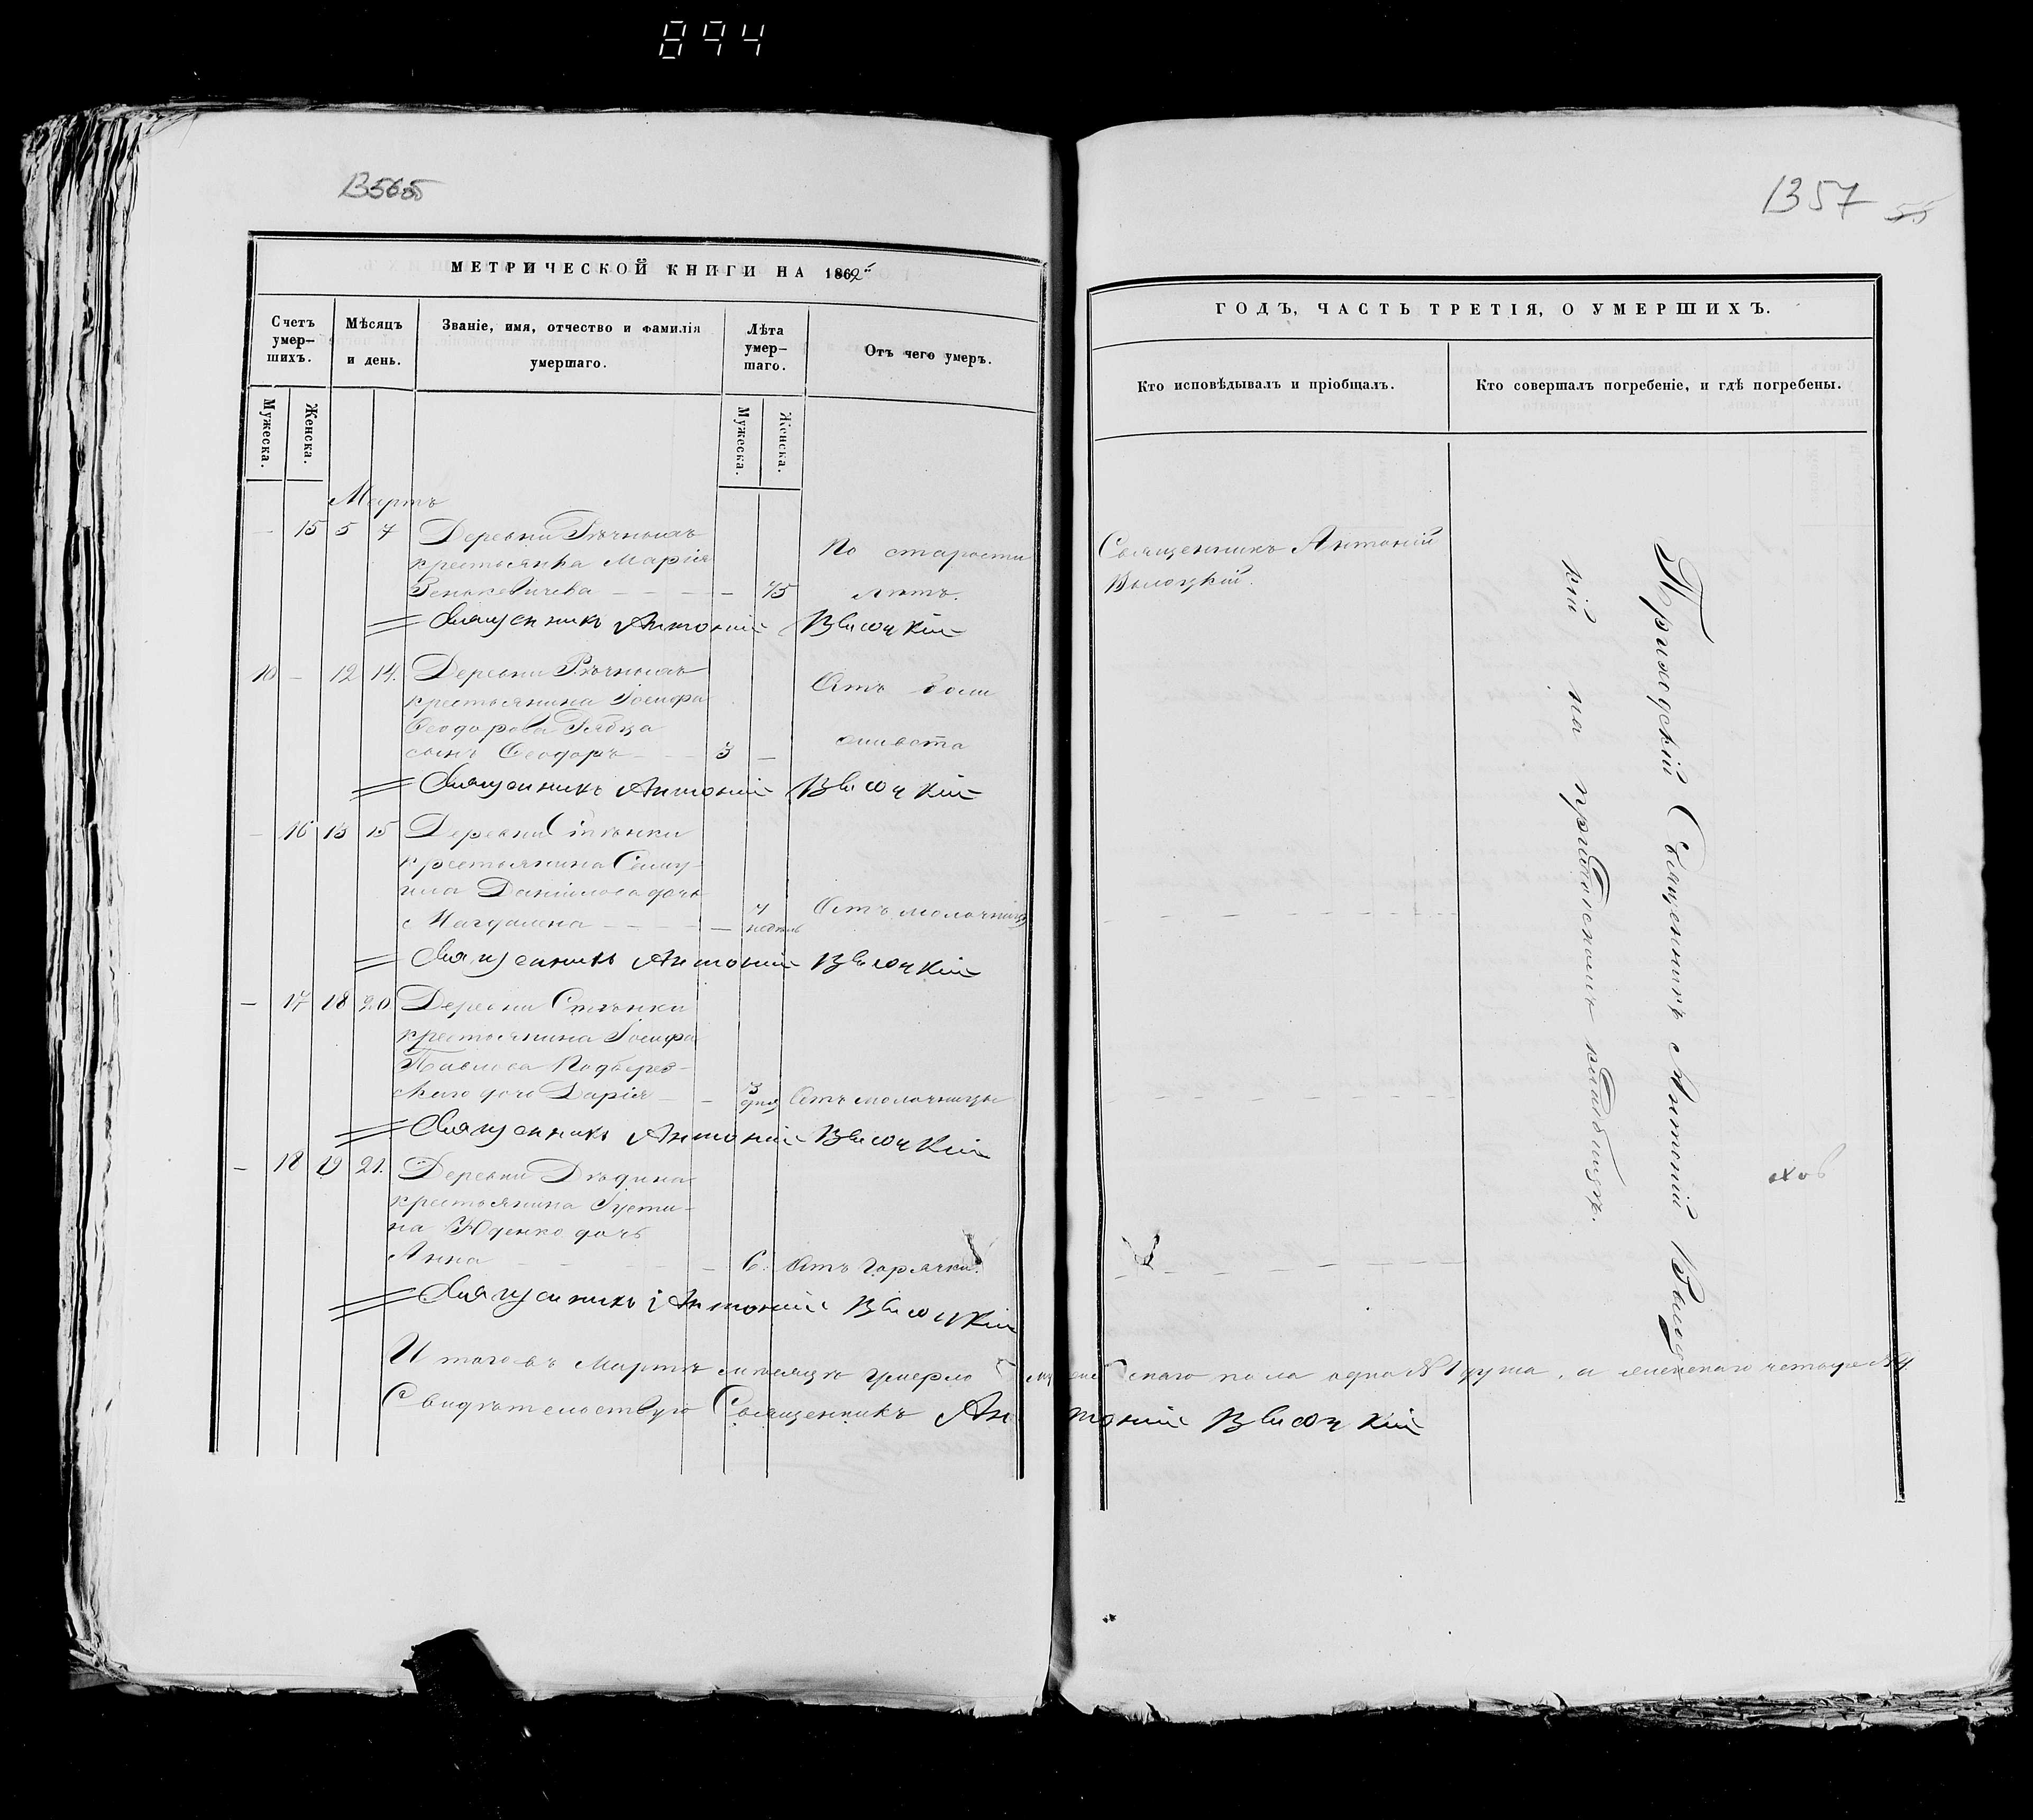 894
1357 55
МЕТРИЧЕСКОЙ КНИГИ НА 1862
ГОДЪ, ЧАСТЬ ТРЕТІЯ, О УМЕРШИХЪ.
Счетъ умершихъ.
Мѣсяцъ и день.
Званіе, имя, отчество и фамилія умершаго.
Лѣта умершаго.
Отъ чего умеръ.
Кто исповѣдывалъ и пріобщалъ.
Кто совершалъ погребеніе, и гдѣ погребены.
Мужеска.
Женска.
Мужеска.
Женска.
Мартъ
— 15 5 7 Деревни
крестьянка Марія По старости
Зенькевичева — 75 лѣтъ.
Священникъ Антоній
Высоцкій.
Священникъ Антоній Высоцкій
10 — 12 14. Деревни
крестьянина Іосифа Отъ боли
Ѳеодорова
сынъ Ѳеодоръ 3 — живота
Священникъ Антоній Высоцкій
— 16 13 15 Деревни Стѣнки
крестьянина Саму-
ила Данилова дочь
Магдалена — 4 недѣль Отъ молочницы
Священникъ Антоній Высоцкій
— 17 18 20 Деревни Стѣнки
крестьянина Іосифа
Павлова Подберез-
скаго дочь Дарія — 3 дня Отъ молочницы
Священникъ Антоній Высоцкій
— 18 19 21. Деревни Дѣдина
крестьянина Іусти-
на Юденко дочь
Анна — 6. Отъ горячки.
Священникъ Антоній Высоцкій
Приходскій Священникъ Антоній Высоц
кій на приходскомъ кладбищѣ.
Итого въ Мартѣ мѣсяцѣ умерло мужескаго пола одна №1 душа, а женскаго четыре №4.
Свидѣтельствую Священникъ Антоній Высоцкій